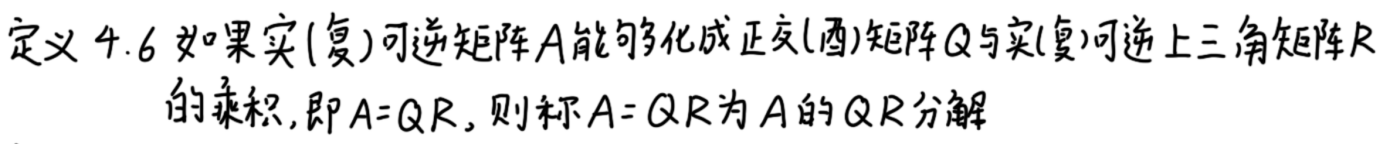 定义 4.6 如果实(复)可逆矩阵A能够化成正交(酉)矩阵Q与实(复)可逆上三角矩阵R
的乘积,即A=QR,则称A=QR为A的QR分解